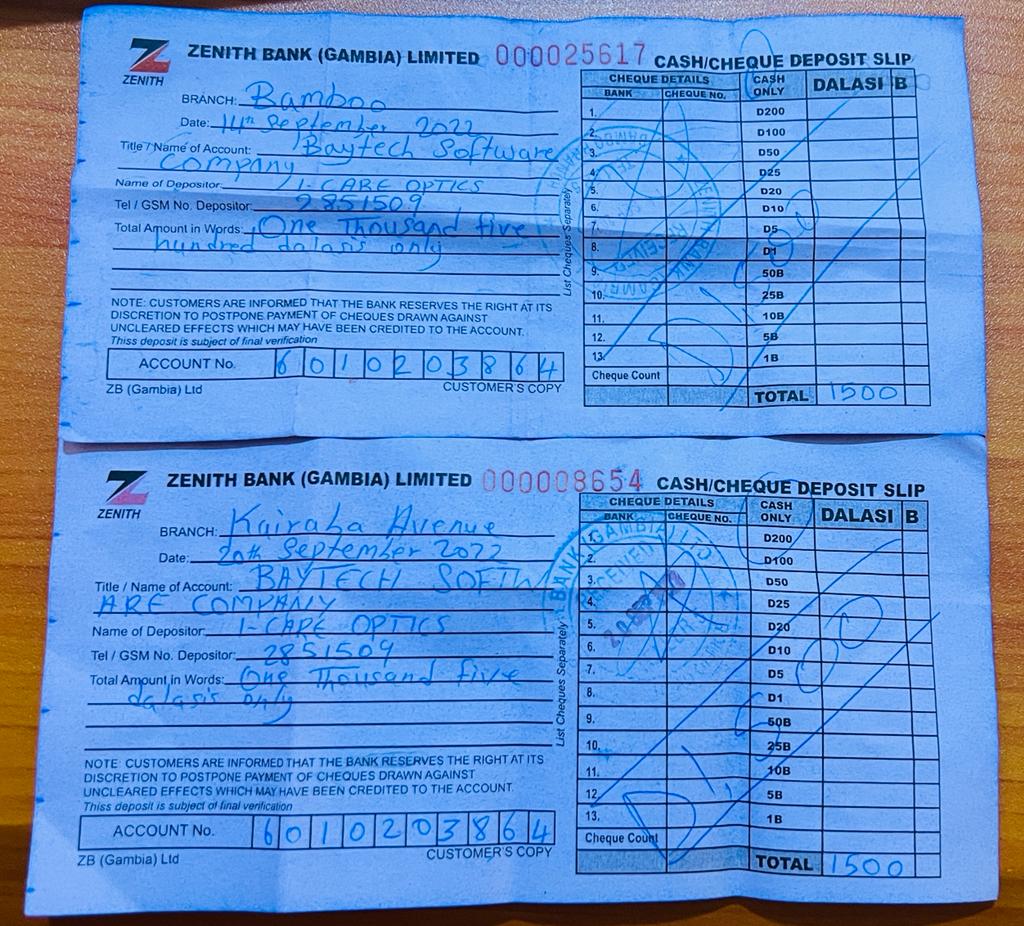 ZENITH
ZENITH BANK (GAMBIA) LIMITED 000025617 CASH/CHEQUE DEPOSIT SLIP
BRANCH: Bamboo
Date: 14th September 2022
Title / Name of Account: Baytech Software
Company
Name of Depositor: I-CARE OPTICS
Tel / GSM No. Depositor: 2851509
Total Amount in Words: One Thousand five
hundred dalasis only
NOTE: CUSTOMERS ARE INFORMED THAT THE BANK RESERVES THE RIGHT AT ITS
DISCRETION TO POSTPONE PAYMENT OF CHEQUES DRAWN AGAINST
UNCLEARED EFFECTS WHICH MAY HAVE BEEN CREDITED TO THE ACCOUNT.
Thiss deposit is subject of final verification
ACCOUNT No. 6 0 1 0 2 0 3 8 6 4
ZB (Gambia) Ltd CUSTOMER'S COPY
List Cheques Separately
CHEQUE DETAILS CASH ONLY DALASI B
BANK CHEQUE NO.
1. D200
2. D100
3. D50
4. D25
5. D20
6. D10
7. D5
8. D1
9. 50B
10. 25B
11. 10B
12. 5B
13. 1B
Cheque Count
TOTAL 1500
ZENITH
ZENITH BANK (GAMBIA) LIMITED 000008654 CASH/CHEQUE DEPOSIT SLIP
BRANCH: Kairaba Avenue
Date: 20th September 2022
Title / Name of Account: BAYTECH SOFTW
ARE COMPANY
Name of Depositor: I-CARE OPTICS
Tel / GSM No. Depositor: 2851509
Total Amount in Words: One Thousand five
dalasis only
NOTE: CUSTOMERS ARE INFORMED THAT THE BANK RESERVES THE RIGHT AT ITS
DISCRETION TO POSTPONE PAYMENT OF CHEQUES DRAWN AGAINST
UNCLEARED EFFECTS WHICH MAY HAVE BEEN CREDITED TO THE ACCOUNT.
Thiss deposit is subject of final verification
ACCOUNT No. 6 0 1 0 2 0 3 8 6 4
ZB (Gambia) Ltd CUSTOMER'S COPY
List Cheques Separately
CHEQUE DETAILS CASH ONLY DALASI B
BANK CHEQUE NO.
1. D200
2. D100
3. D50
4. D25
5. D20
6. D10
7. D5
8. D1
9. 50B
10. 25B
11. 10B
12. 5B
13. 1B
Cheque Count
TOTAL 1500